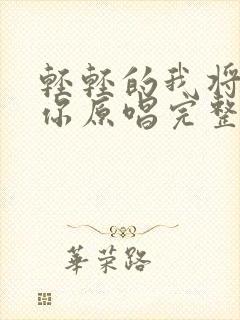 轻轻的我将
你原唱完整
華荣路